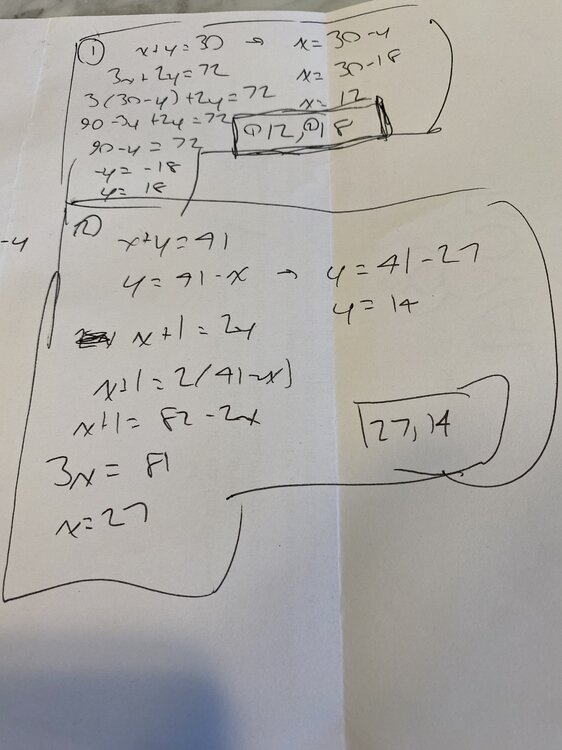 1 x+y=30 → x=30-y
3x+2y=72 x=30-18
3(30-y)+2y=72 x=12
90-3y+2y=72 ① 12, ② 18
90-y=72
-y=-18
y=18
-y
2) x+y=41
y=41-x → y=41-27
y=14
x+1=2y
x+1=2(41-x)
x+1=82-2x
27,14
3x=81
x=27